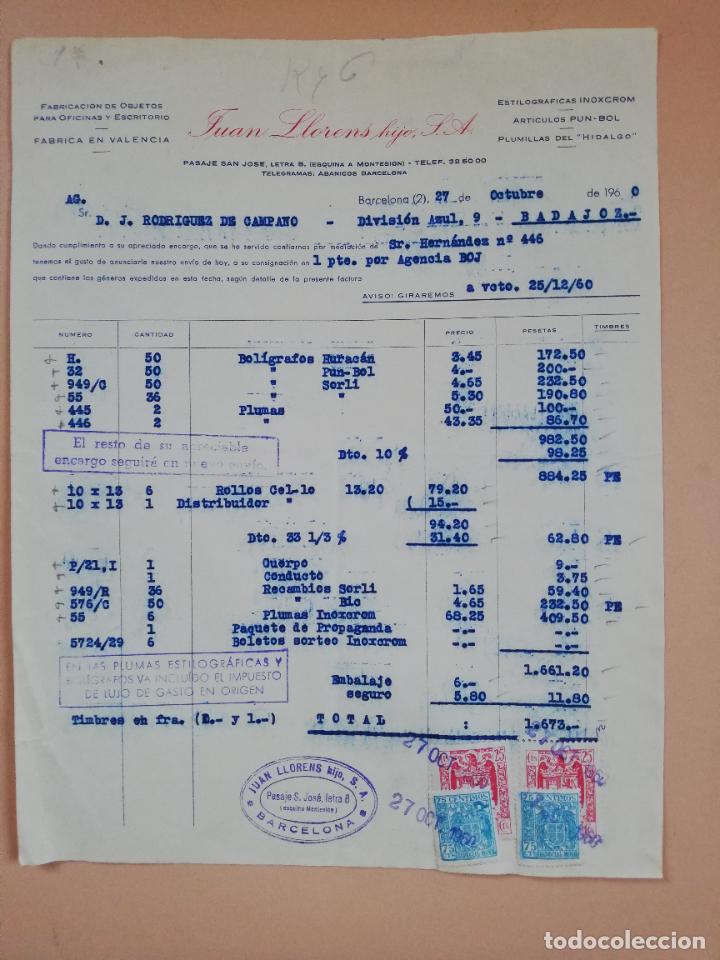 K y 6
FABRICACION DE OBJETOS
PARA OFICINAS Y ESCRITORIO
FABRICA EN VALENCIA
Juan Llorens hijo, S.A.
ESTILOGRAFICAS INOXCROM
ARTICULOS PUN-BOL
PLUMILLAS DEL "HIDALGO"
PASAJE SAN JOSE, LETRA B. (ESQUINA A MONTESION) - TELEF. 32 50 00
TELEGRAMAS: ABANICOS BARCELONA
AG. Barcelona (2), 27 de Octubre de 1960
Sr. D. J. RODRIGUEZ DE CAMPANO - División Azul, 9 - BADAJOZ.-
Dando cumplimiento a su apreciado encargo, que se ha servido confiarnos por mediación de Sr. Hernández nº 446
tenemos el gusto de anunciarle nuestro envío de hoy, a su consignación en 1 pte. por Agencia BOJ
que contiene los géneros expedidos en esta fecha, según detalle de la presente factura
AVISO: GIRAREMOS a vcto. 25/12/60
NUMERO CANTIDAD PRECIO PESETAS TIMBRES
H. 50 Bolígrafos Huracán 3.45 172.50
32 50 " Pun-Bol 4.- 200.-
949/C 50 " Sorli 4.65 232.50
55 36 " " 5.30 190.80
445 2 Plumas 50.- 100.-
446 2 " 43.35 86.70
982.50
El resto de su apreciable
encargo seguirá en nuevo envío.
Dto. 10 % 98.25
884.25 PE
10 x 13 6 Rollos Cel-lo 13.20 79.20
10 x 13 1 Distribuidor " ( 15.-
94.20
Dto. 33 1/3 % 31.40 62.80 PE
P/21,I 1 Cuerpo 9.-
1 Conducto 3.75
949/R 36 Recambios Sorli 1.65 59.40
576/C 50 " Bic 4.65 232.50 PE
55 6 Plumas Inoxcrom 68.25 409.50
1 Paquete de Propaganda -.- -.-
5724/29 6 Boletos sorteo Inoxcrom -.- -.-
1.661.20
EN LAS PLUMAS ESTILOGRÁFICAS Y
BOLÍGRAFOS VA INCLUIDO EL IMPUESTO
DE LUJO DE GASTO EN ORIGEN
Embalaje 6.-
seguro 5.80 11.80
Timbres en fra. (2.- y 1.-) TOTAL : 1.673.-
JUAN LLORENS hijo, S. A.
Pasaje S. José, letra B
(esquina Montesion)
BARCELONA
27 OCT
25
25
27 OCT. 1960
75 CENTIMOS
75 CENTIMOS
75
75